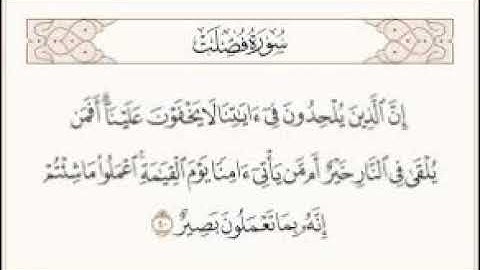 سُورَةُ فُصِّلَتْ
إِنَّ ٱلَّذِينَ يُلْحِدُونَ فِىٓ ءَايَـٰتِنَا لَا يَخْفَوْنَ عَلَيْنَآ ۗ أَفَمَن
يُلْقَىٰ فِى ٱلنَّارِ خَيْرٌ أَم مَّن يَأْتِىٓ ءَامِنًا يَوْمَ ٱلْقِيَـٰمَةِ ۚ ٱعْمَلُوا۟ مَا شِئْتُمْ ۖ
إِنَّهُۥ بِمَا تَعْمَلُونَ بَصِيرٌ ٤٠